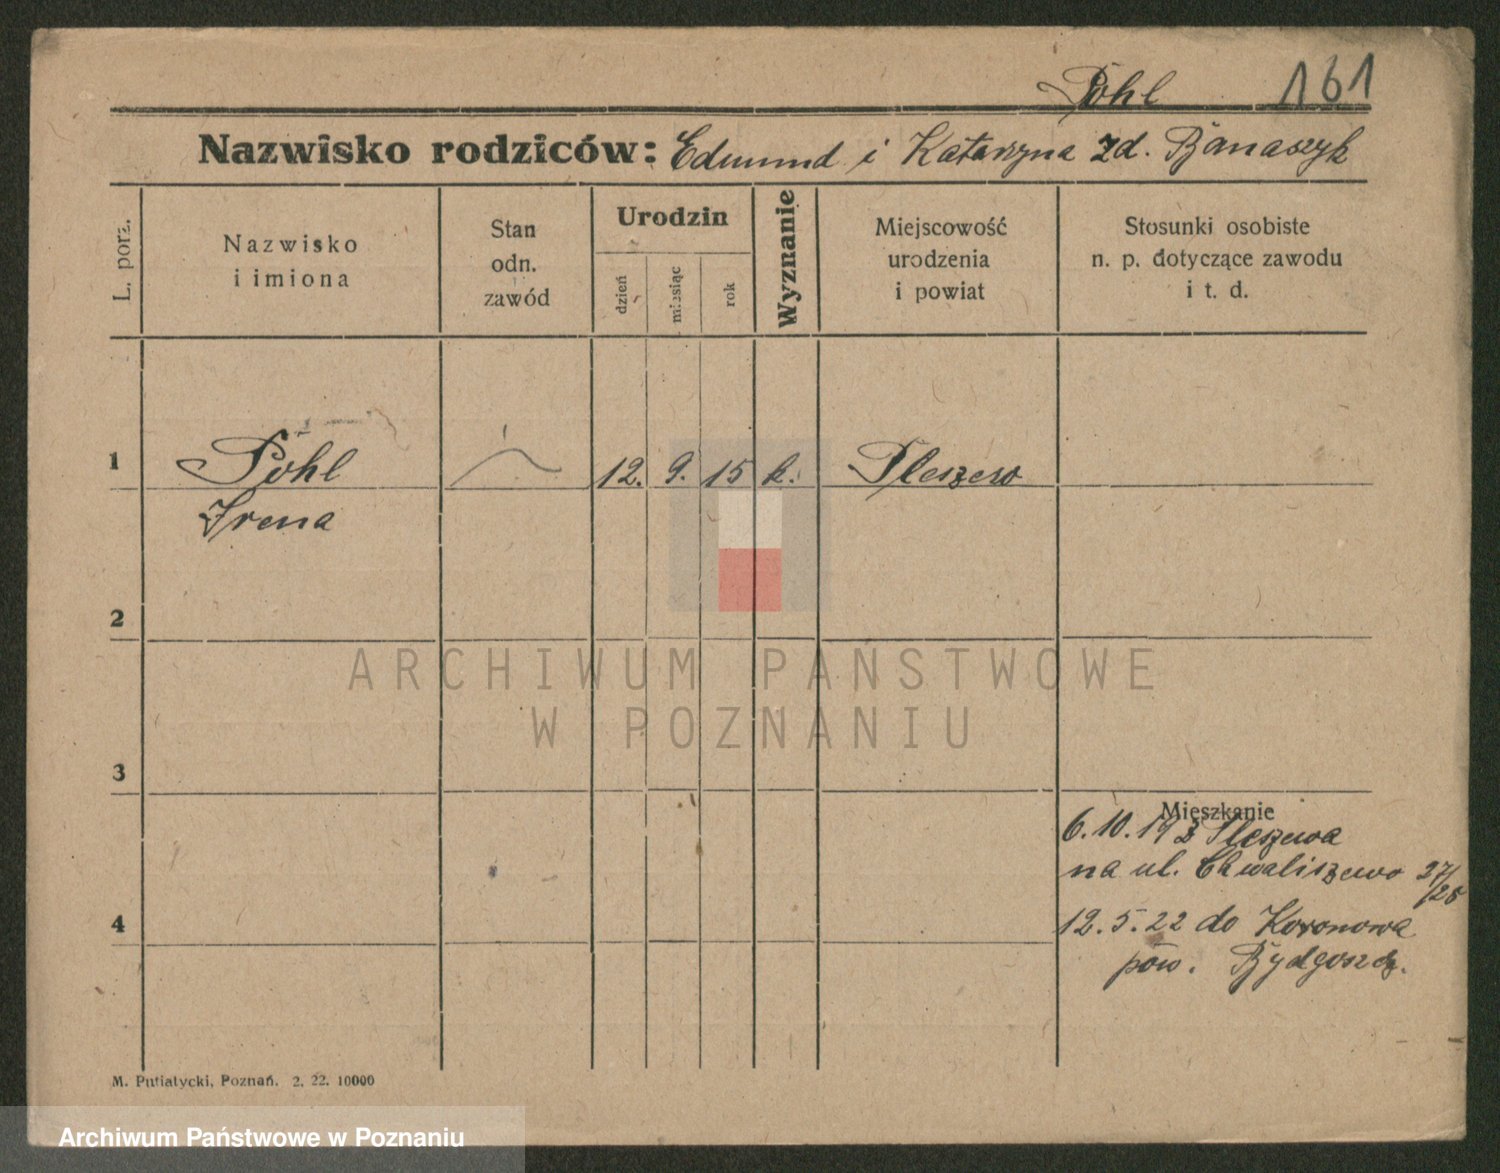 Pohl 161
Nazwisko rodziców: Edmund i Katarzyna zd. Banaszyk
L. porz.
Nazwisko
i imiona
Stan
odn.
zawód
Urodzin
dzień
miesiąc
rok
Wyznanie
Miejscowość
urodzenia
i powiat
Stosunki osobiste
n. p. dotyczące zawodu
i t. d.
1 Pohl 12. 9. 15 k. Pleszew
Irena
2
3
Mieszkanie
6.10.19 z Pleszewa
na ul. Chwaliszewo 37/25
4 12.5.22 do Koronowa
pow. Bydgoszcz.
M. Putiatycki, Poznań. 2. 22. 10000
ARCHIWUM PAŃSTWOWE
W POZNANIU
Archiwum Państwowe w Poznaniu